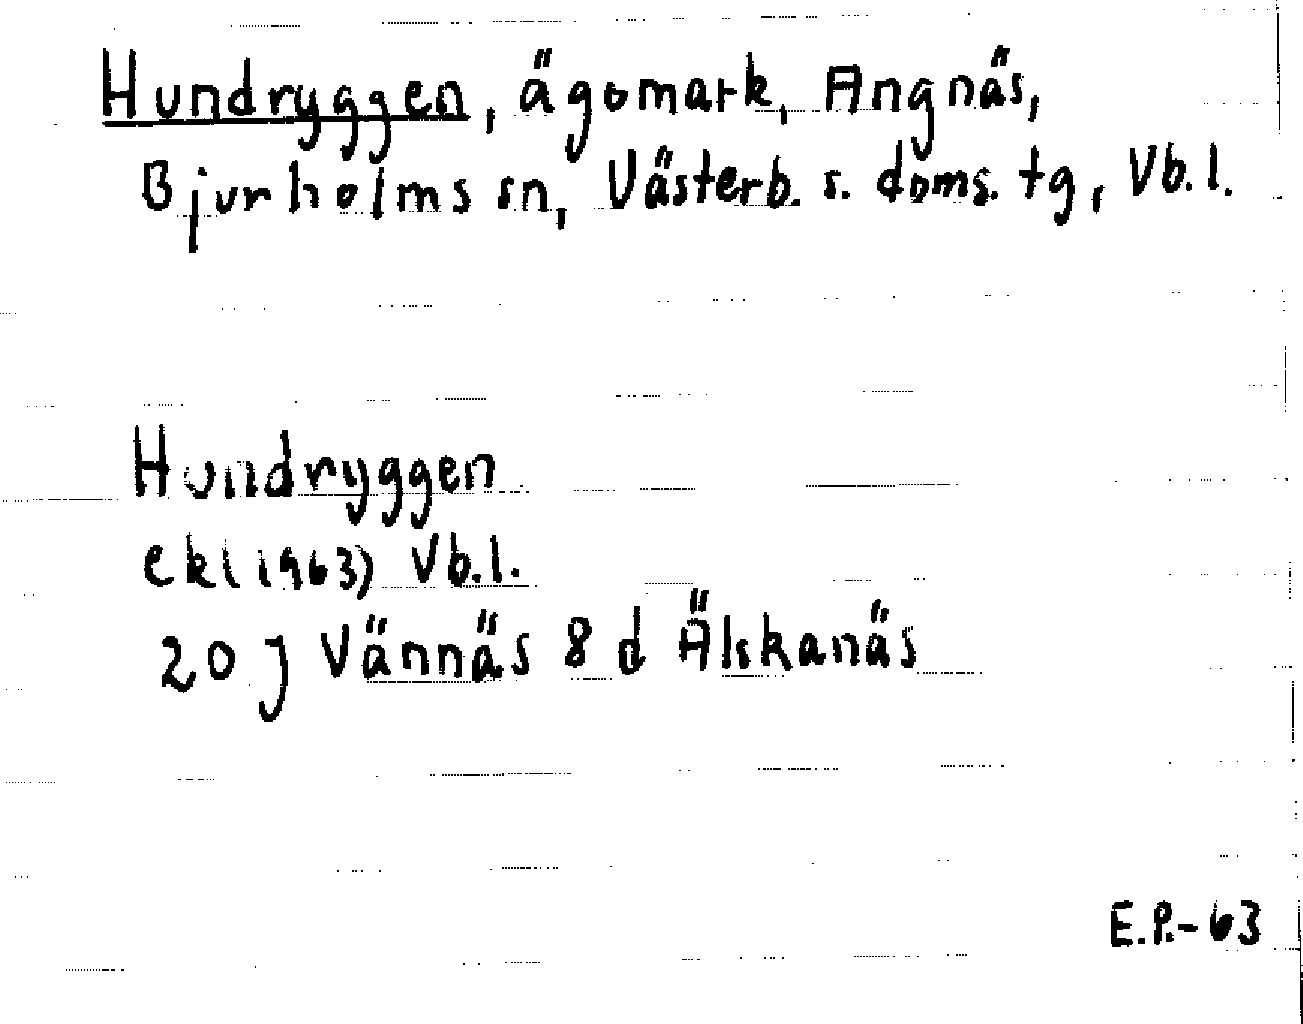 Hundryggen, ägomark, Angnäs,
Bjurholms sn, Västerb. s. doms. tg, Vb.l.
Hundryggen
ek(1963) Vb.l.
20 J Vännäs 8 d Älskanäs
E.P.-63